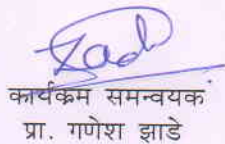 कार्यक्रम समन्वयक
प्रा. गणेश झाडे